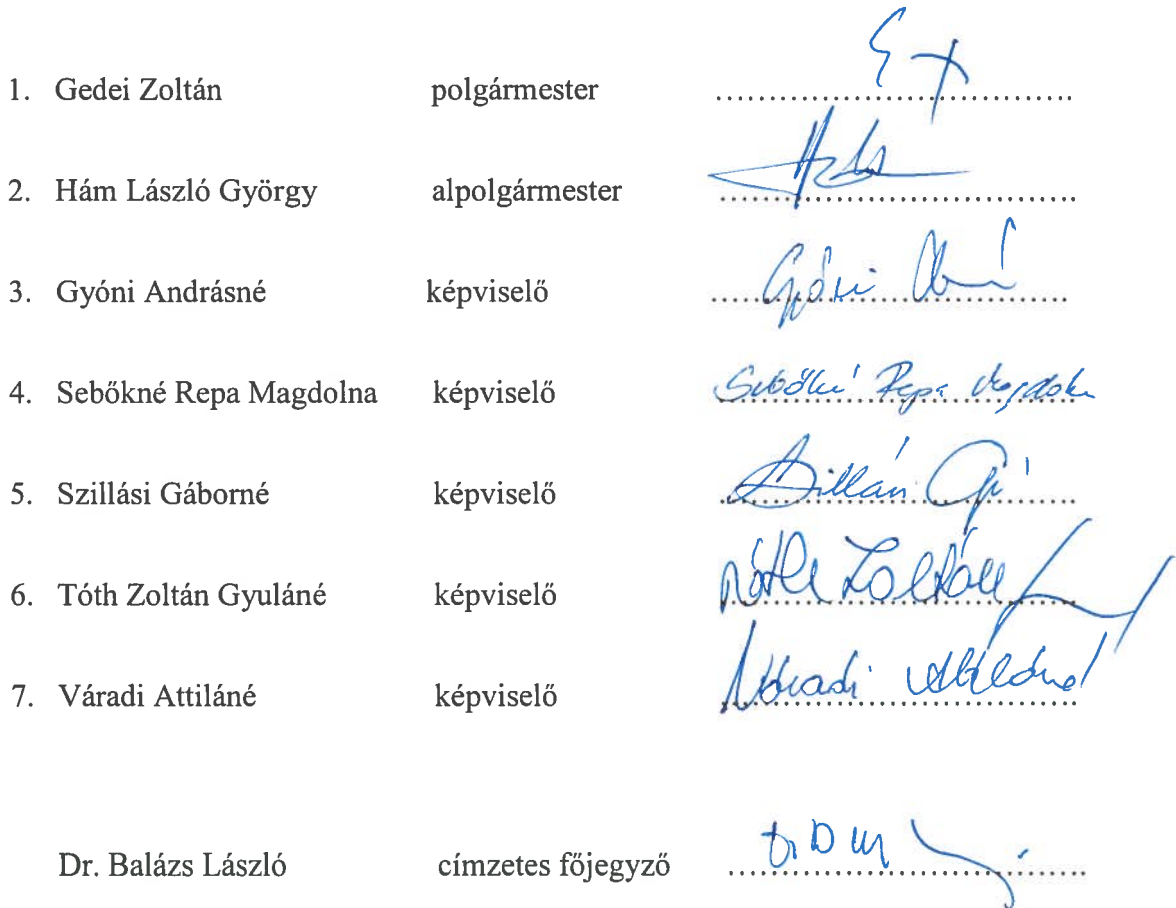 1. Gedei Zoltán polgármester ..........
2. Hám László György alpolgármester ..........
3. Gyóni Andrásné képviselő .......... Gyóni
4. Sebőkné Repa Magdolna képviselő .......... Sebőkné Repa Magdolna
5. Szillási Gáborné képviselő ..........
6. Tóth Zoltán Gyuláné képviselő .......... Tóth Zoltán
7. Váradi Attiláné képviselő .......... Váradi Attiláné
Dr. Balázs László címzetes főjegyző ..........